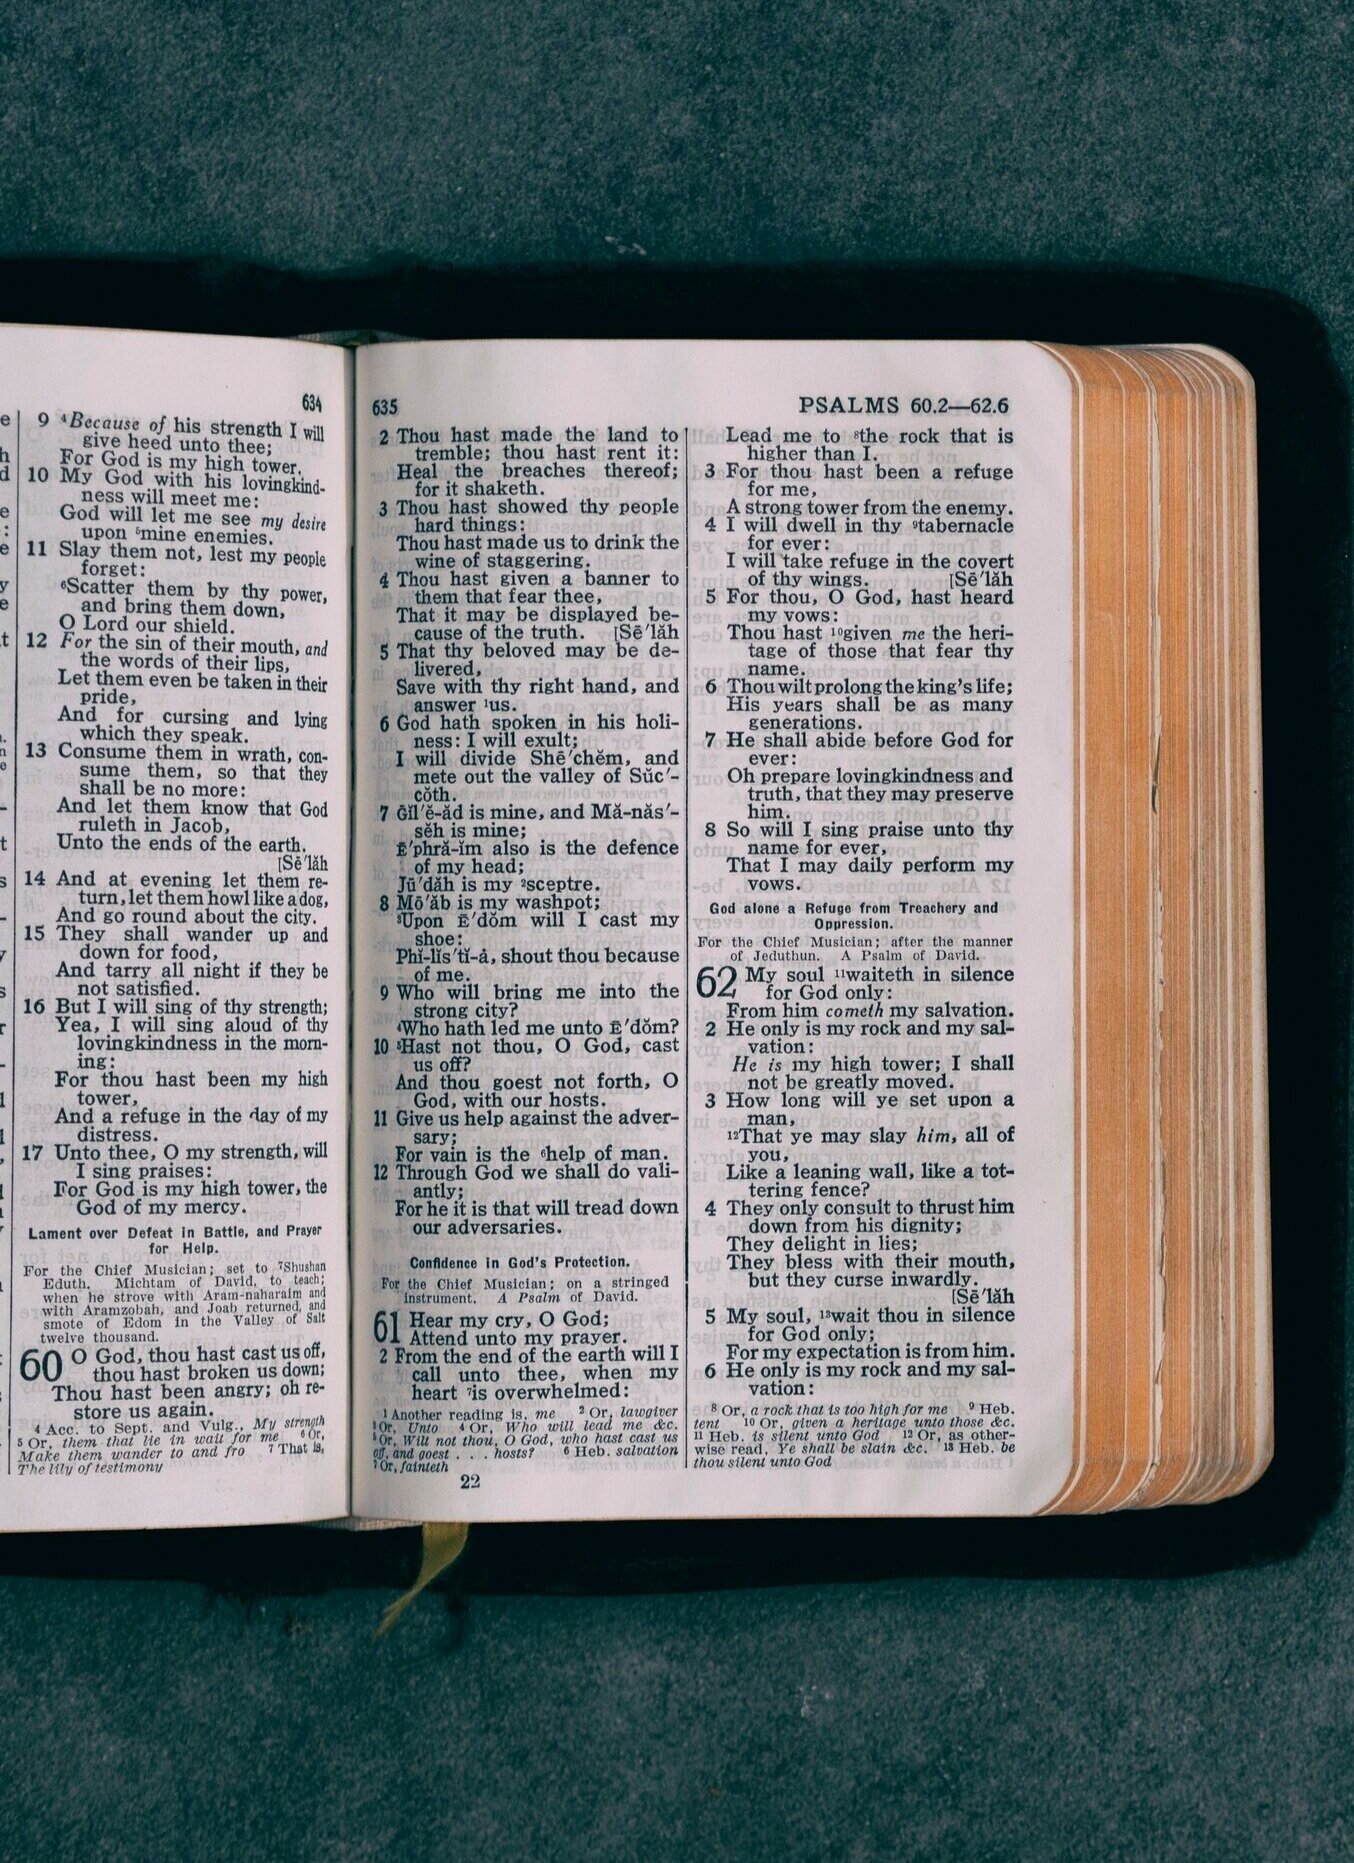 634
9 ⁴Because of his strength I will
give heed unto thee;
For God is my high tower.
10 My God with his lovingkind-
ness will meet me:
God will let me see my desire
upon ⁵mine enemies.
11 Slay them not, lest my people
forget:
⁶Scatter them by thy power,
and bring them down,
O Lord our shield.
12 For the sin of their mouth, and
the words of their lips,
Let them even be taken in their
pride,
And for cursing and lying
which they speak.
13 Consume them in wrath, con-
sume them, so that they
shall be no more:
And let them know that God
ruleth in Jacob,
Unto the ends of the earth.
[Sē′lăh
14 And at evening let them re-
turn, let them howl like a dog,
And go round about the city.
15 They shall wander up and
down for food,
And tarry all night if they be
not satisfied.
16 But I will sing of thy strength;
Yea, I will sing aloud of thy
lovingkindness in the morn-
ing:
For thou hast been my high
tower,
And a refuge in the day of my
distress.
17 Unto thee, O my strength, will
I sing praises:
For God is my high tower, the
God of my mercy.
Lament over Defeat in Battle, and Prayer
for Help.
For the Chief Musician; set to ⁷Shushan
Eduth. Michtam of David, to teach;
when he strove with Aram-naharaim and
with Aramzobah, and Joab returned, and
smote of Edom in the Valley of Salt
twelve thousand.
60 O God, thou hast cast us off,
thou hast broken us down;
Thou hast been angry; oh re-
store us again.
4 Acc. to Sept. and Vulg., My strength
5 Or, them that lie in wait for me 6 Or,
Make them wander to and fro 7 That is,
The lily of testimony
635
PSALMS 60.2—62.6
2 Thou hast made the land to
tremble; thou hast rent it:
Heal the breaches thereof;
for it shaketh.
3 Thou hast showed thy people
hard things:
Thou hast made us to drink the
wine of staggering.
4 Thou hast given a banner to
them that fear thee,
That it may be displayed be-
cause of the truth. [Sē′lăh
5 That thy beloved may be de-
livered,
Save with thy right hand, and
answer ¹us.
6 God hath spoken in his holi-
ness: I will exult;
I will divide Shē′chĕm, and
mete out the valley of Sŭc′-
cŏth.
7 Ḡĭl′ĕ-ăd is mine, and Mă-năs′-
sĕh is mine;
Ē′phră-ĭm also is the defence
of my head;
Jū′dăh is my ²sceptre.
8 Mō′ăb is my washpot;
³Upon Ē′dŏm will I cast my
shoe:
Phĭ-lĭs′tĭ-ȧ, shout thou because
of me.
9 Who will bring me into the
strong city?
⁴Who hath led me unto Ē′dŏm?
10 ⁵Hast not thou, O God, cast
us off?
And thou goest not forth, O
God, with our hosts.
11 Give us help against the adver-
sary;
For vain is the ⁶help of man.
12 Through God we shall do vali-
antly;
For he it is that will tread down
our adversaries.
Confidence in God's Protection.
For the Chief Musician; on a stringed
instrument. A Psalm of David.
61 Hear my cry, O God;
Attend unto my prayer.
2 From the end of the earth will I
call unto thee, when my
heart ⁷is overwhelmed:
1 Another reading is, me 2 Or, lawgiver
3 Or, Unto 4 Or, Who will lead me &c.
5 Or, Will not thou, O God, who hast cast us
off, and goest . . . hosts? 6 Heb. salvation
7 Or, fainteth
22
Lead me to ⁸the rock that is
higher than I.
3 For thou hast been a refuge
for me,
A strong tower from the enemy.
4 I will dwell in thy ⁹tabernacle
for ever:
I will take refuge in the covert
of thy wings. [Sē′lăh
5 For thou, O God, hast heard
my vows:
Thou hast ¹⁰given me the heri-
tage of those that fear thy
name.
6 Thou wilt prolong the king's life;
His years shall be as many
generations.
7 He shall abide before God for
ever:
Oh prepare lovingkindness and
truth, that they may preserve
him.
8 So will I sing praise unto thy
name for ever,
That I may daily perform my
vows.
God alone a Refuge from Treachery and
Oppression.
For the Chief Musician; after the manner
of Jeduthun. A Psalm of David.
62 My soul ¹¹waiteth in silence
for God only:
From him cometh my salvation.
2 He only is my rock and my sal-
vation:
He is my high tower; I shall
not be greatly moved.
3 How long will ye set upon a
man,
¹²That ye may slay him, all of
you,
Like a leaning wall, like a tot-
tering fence?
4 They only consult to thrust him
down from his dignity;
They delight in lies;
They bless with their mouth,
but they curse inwardly.
[Sē′lăh
5 My soul, ¹³wait thou in silence
for God only;
For my expectation is from him.
6 He only is my rock and my sal-
vation:
8 Or, a rock that is too high for me 9 Heb.
tent 10 Or, given a heritage unto those &c.
11 Heb. is silent unto God 12 Or, as other-
wise read, Ye shall be slain &c. 13 Heb. be
thou silent unto God